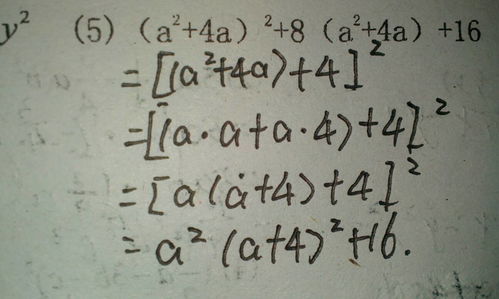 y² (5) (a²+4a)²+8(a²+4a)+16
=[(a²+4a)+4]²
=[(a·a+a·4)+4]²
=[a(a+4)+4]²
=a²(a+4)²+16.